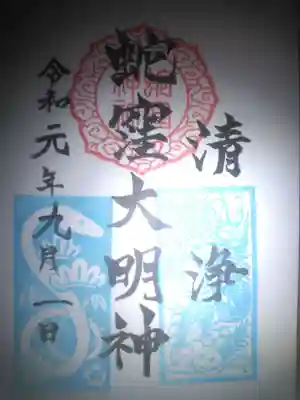 清浄
蛇窪大明神
令和元年九月一日